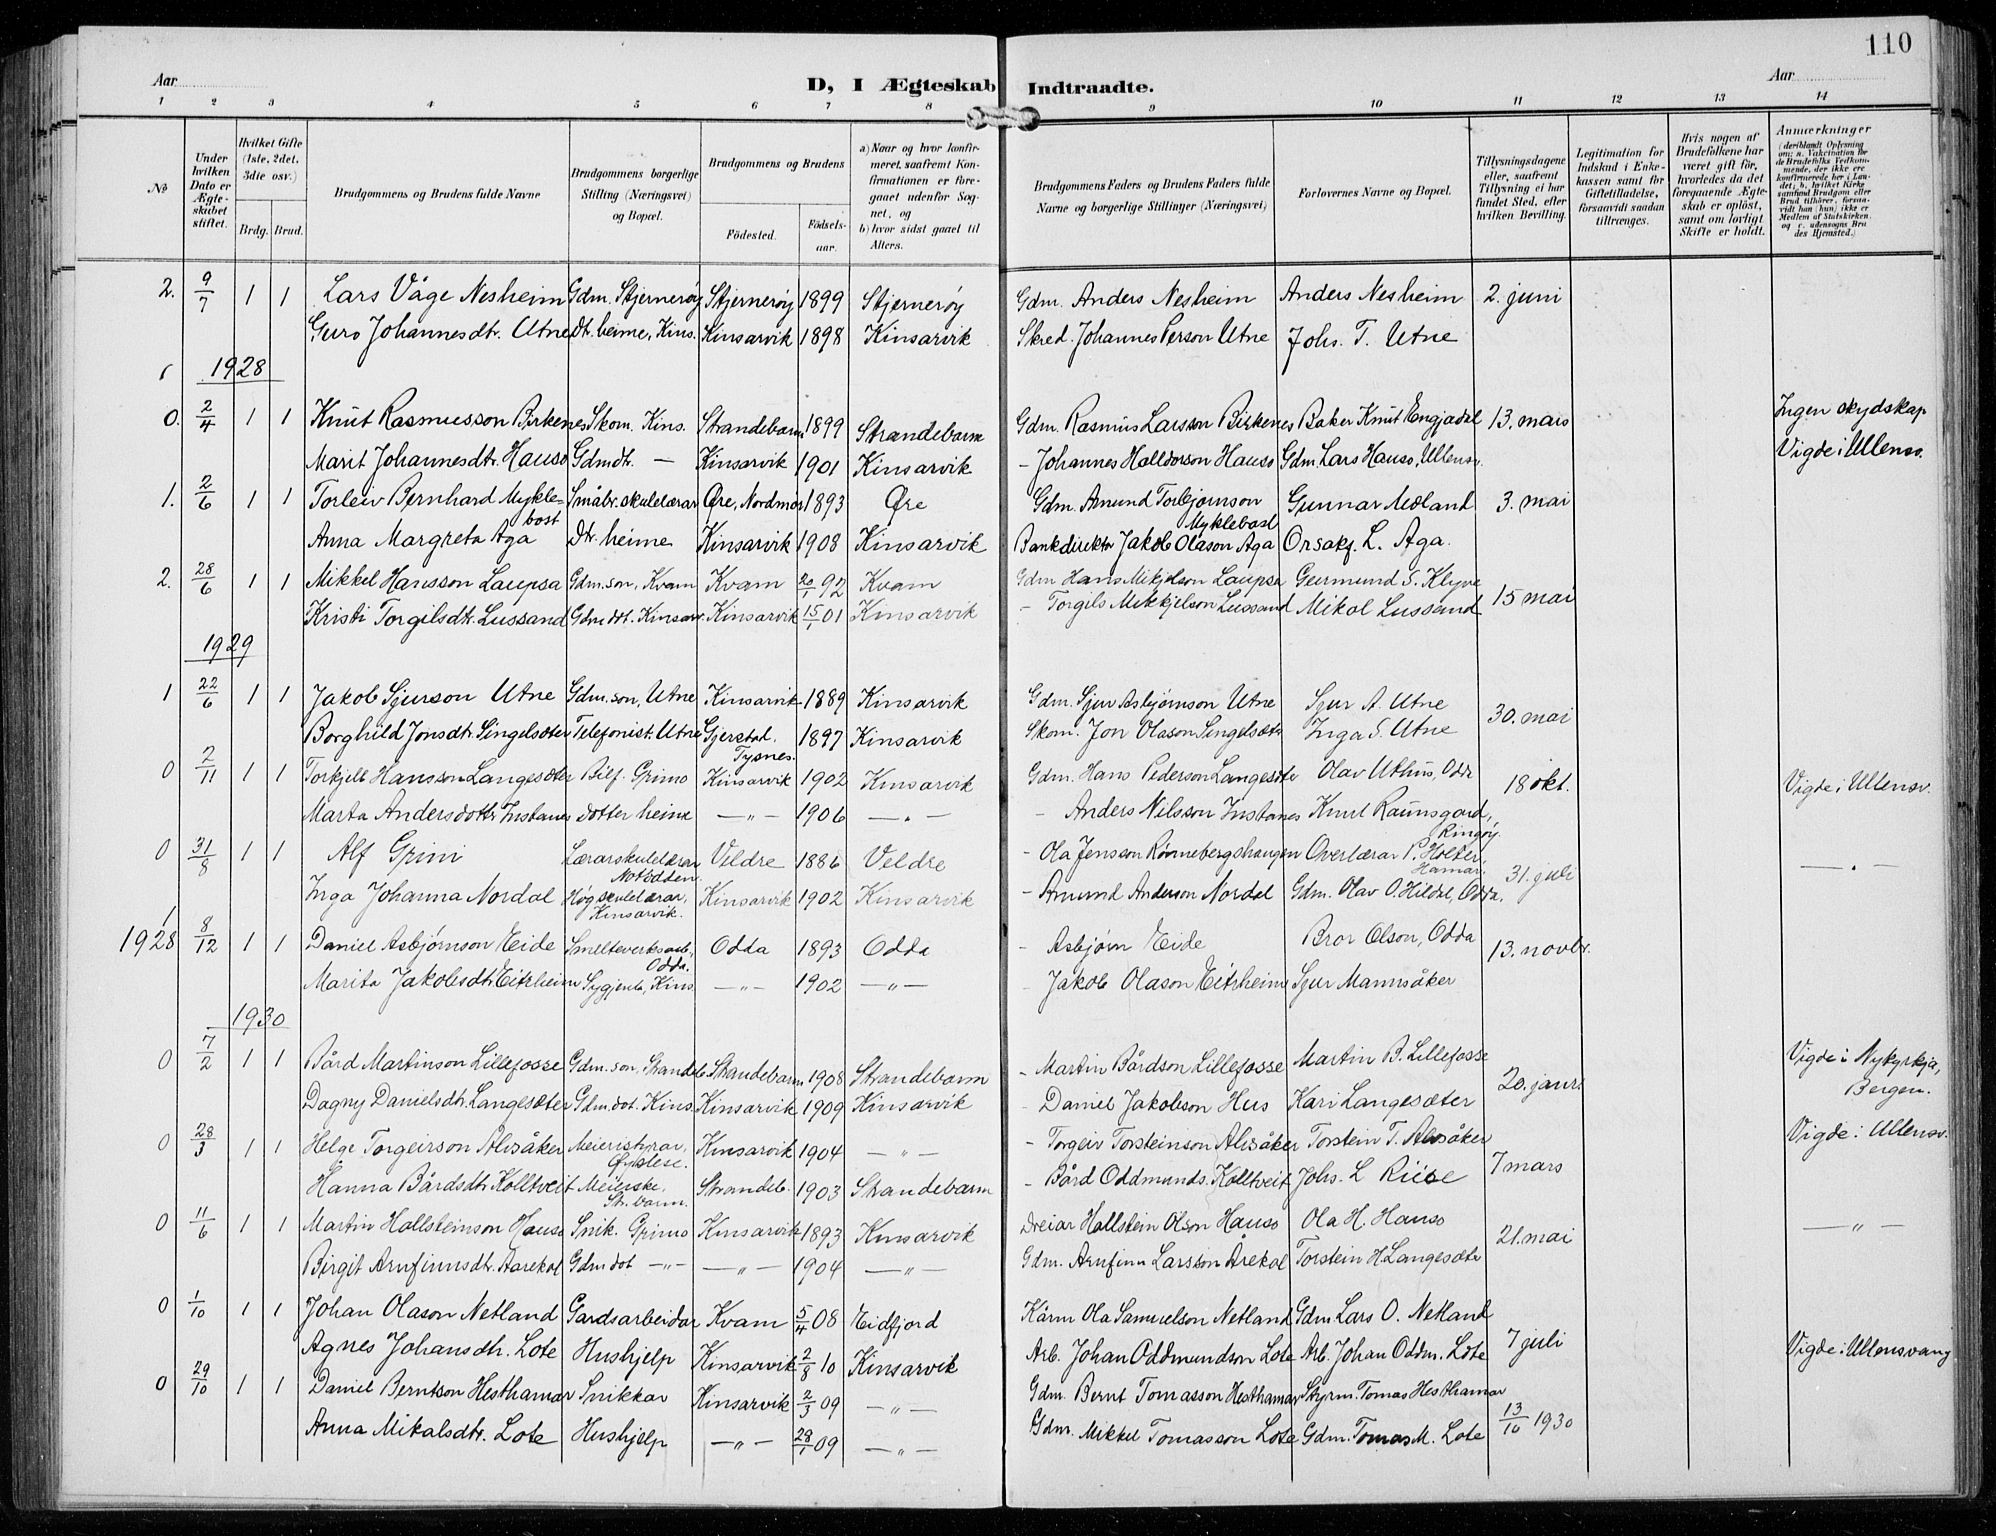 110
Aar
D, I Ægteskab Indtraadte.
Aar
1 2 3 4 5 6 7 8 9 10 11 12 13 14
No
Under hvilken Dato er Ægteskabet stiftet.
Hvilket Gifte (1ste, 2det, 3die osv.)
Brdg. Brud.
Brudgommens og Brudens fulde Navne
Brudgommens borgerlige Stilling (Næringsvei) og Bopæl.
Brudgommens og Brudens
Födested. Födsels-aar.
a) Naar og hvor konfirmeret, saafremt Konfirmationen er foregaaet udenfor Sognet, og b) hvor sidst gaaet til Alters.
Brudgommens Faders og Brudens Faders fulde Navne og borgerlige Stillinger (Næringsvei)
Forlovernes Navne og Bopæl.
Tillysningsdagene eller, saafremt Tillysning ei har fundet Sted, efter hvilken Bevilling.
Legitimation for Indskud i Enkekassen samt for Giftetilladelse, forsaavidt saadan tiltrænges.
Hvis nogen af Brudefolkene har været gift för, hvorledes da det foregaaende Ægteskab er oplöst, samt om lovligt Skifte er holdt.
Anmærkninger
2. 9/7 1 1 Lars Våge Nesheim Gdm. Stjernerøy Stjernerøy 1899 Stjernerøy Gdm. Anders Nesheim Anders Nesheim 2. juni
Guro Johannesdtr. Utne Dt. heime, Kins. Kinsarvik 1898 Kinsarvik Skred. Johannes Person Utne Johs. T. Utne
1928
0. 2/4 1 1 Knut Rasmusson Birkenes Skom. Kins. Strandebarm 1899 Strandebarm Gdm. Rasmus Larsson Birkenes Baker Knut Engjadal 13. mars Ingen skydskap
Marit Johannesdtr. Hauso Gdmdtr. — Kinsarvik 1901 Kinsarvik - Johannes Halldorson Hauso Gdm. Lars Hauso, Ullensv. Vigde i Ullensv.
1. 2/6 1 1 Torleiv Bernhard Myklebost Småbr.skulelærar Øre, Nordmør 1893 Øre Gdm. Amund Torbjørnson Myklebost Gunnar Mæland 3. mai
Anna Margreta Aga Dtr. heime Kinsarvik 1908 Kinsarvik Bankdirektør Jakob Olason Aga Orsakf. L. Aga.
2. 28/6 1 1 Mikkel Hansson Laupsa Gdm.son, Kvam Kvam 20/1 92 Kvam Gdm Hans Mikjelson Laupsa Gurmund S. Klyve 15 mai
Kristi Torgilsdtr. Lussand Gdm dot. Kinsarv. Kinsarvik 15/1 01 Kinsarvik - Torgils Mikkjelson Lussand Mikal Lussand
1929
1 22/6 1 1 Jakob Sjurson Utne Gdm.son, Utne Kinsarvik 1889 Kinsarvik Gdm. Sjur Asbjørnson Utne Sjur A. Utne 30. mai
Borghild Jonsdtr. Singelsæter Telefonist. Utne Gjerstad, Tysnes. 1897 Kinsarvik Skom. Jon Olason Singelsæter Inga S. Utne
0 2/11 1 1 Torkjell Hansson Langesæter Bilf. Grimo Kinsarvik 1902 Kinsarvik Gdm. Hans Pederson Langesæte Olav Uthus, Odda 18 okt. Vigde i Ullensv.
Marta Andersdotter Instanes dotter heime —"— 1906 —"— - Anders Nilsson Instanes Knut Raunsgard, Ringøy.
0 31/8 1 1 Alf Grini Lærarskulelærar Notodden. Veldre 1886 Veldre - Ola Jensson Rønnebergshaugen Overlærar P. Holter, Hamar. 31. juli —"—
Inga Johanna Nordal Høgskulelærar, Kinsarvik. Kinsarvik 1902 Kinsarvik - Amund Anderson Nordal Gdm. Olav O. Hildal, Odda.
1928 8/12 1 1 Daniel Asbjørnson Eide Smelteverksarb., Odda. Odda 1893 Odda - Asbjørn Eide Bror Olson, Odda 13. novbr.
Marita Jakobsdtr. Eitrheim Sygjent, Kins. —"— 1902 —"— - Jakob Olason Eitrheim Sjur Mannsåker
1930
0 7/2 1 1 Bård Martinson Lillefosse Gdm.son, Strandeb. Strandebarm 1908 Strandebarm - Martin Bårdson Lillefosse Martin B. Lillefosse 20. janr. Vigde i Nykyrkja, Bergen.
Dagny Danielsdtr. Langesæter Gdm.dot. Kins. Kinsarvik 1909 Kinsarvik - Daniel Jakobson Hus Kari Langesæter
0 28/3 1 1 Helge Torgeirson Alvsåker Meieristyrar, Øystese. Kinsarvik 1904 —"— - Torgeir Torsteinson Alvsåker Torstein T. Alvsåker 7 mars Vigde i Ullensv.
Hanna Bårdsdtr. Kolltveit Meierske, Str.barm. Strandeb. 1903 Strandebarm - Bård Oddmunds. Kolltveit Johs. L Riise
0 11/6 1 1 Martin Hallsteinson Hauso Snik. Grimo Kinsarvik 1893 Kinsarvik Dreiar Hallstein Olson Hauso Ola H. Hauso 21. mai —"—
Birgit Arnfinnsdtr. Aarekol Gdm dot —"— —"— 1904 —"— Gdm. Arnfinn Larsson Årekol Torstein H Langesæte
0 1/10 1 1 Johan Olason Netland Gardsarbeidar Kvam 5/4 08 Eidfjord Kårm Ola Samuelson Netland Gdm Lars O. Netland 7 juli Vigde i Ullensvang
Agnes Johansdtr. Lote Hushjelp Kinsarvik 2/8 10 Kinsarvik Arb. Johan Oddmundson Lote Arb. Johan Oddm. Lote
0 29/10 1 1 Daniel Berntson Hesthamar Snikkar Kinsarvik 2/3 09 —"— Gdm. Bernt Tomasson Hesthamar Styrm. Tomas Hesthamar 13/10 1930
Anna Mikalsdtr. Lote Hushjelp —"— 28/1 09 —"— Gdm. Mikkel Tomasson Lote Gdm. Tomas M. Lote